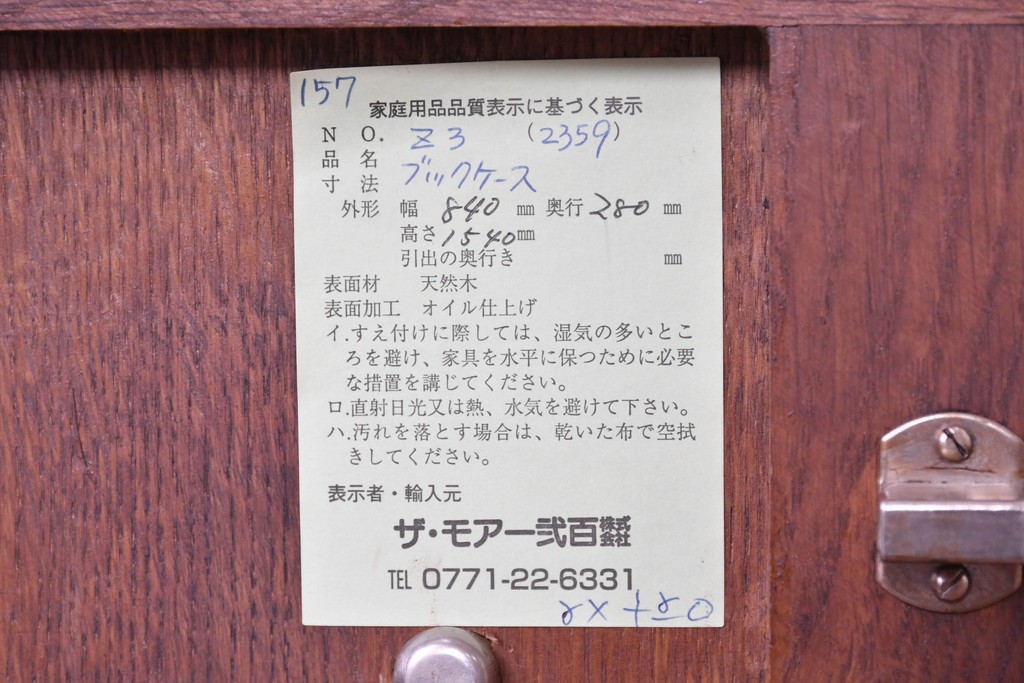 157
家庭用品品質表示に基づく表示
NO. Z3 (2359)
品名 ブックケース
寸法
外形 幅 840 ㎜ 奥行 280 ㎜
高さ 1540 ㎜
引出の奥行き ㎜
表面材 天然木
表面加工 オイル仕上げ
イ.すえ付けに際しては、湿気の多いとこ
ろを避け、家具を水平に保つために必要
な措置を講じてください。
ロ.直射日光又は熱、水気を避けて下さい。
ハ.汚れを落とす場合は、乾いた布で空拭
きしてください。
表示者・輸入元
ザ・モアー弐百株式会社
TEL 0771-22-6331